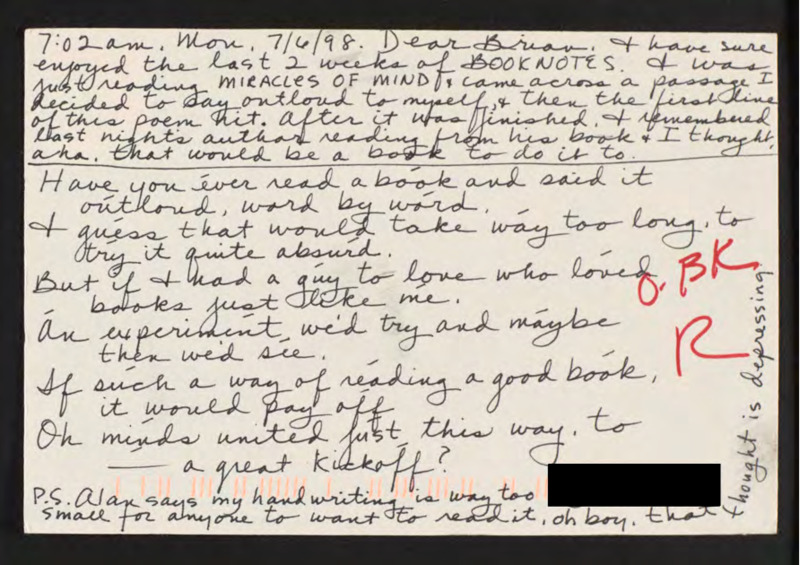 7:02 am. Mon. 7/6/98. Dear Brian. I have sure
enjoyed the last 2 weeks of BOOKNOTES. I was
just reading MIRACLES OF MIND & came across a passage I
decided to say outloud to myself, & then the first line
of this poem hit. After it was finished, I remembered
last nights author reading from his book & I thought,
aha. that would be a book to do it to.
Have you éver read a bóok and said it
óutloud, word by wórd.
I guéss that would take wáy too long, to
trý it quite absúrd.
But íf I had a gúy to love who lóved
bóoks just like me.
Án experiment we'd try and máybe
then we'd sée.
If súch a way of réading a good bóok,
it would pay off
Oh mínds united just this way, to
— a great kickoff?
P.S. Alan says my handwriting is way too
small for anyone to want to read it, oh boy, that
thought is depressing
O. BK
R